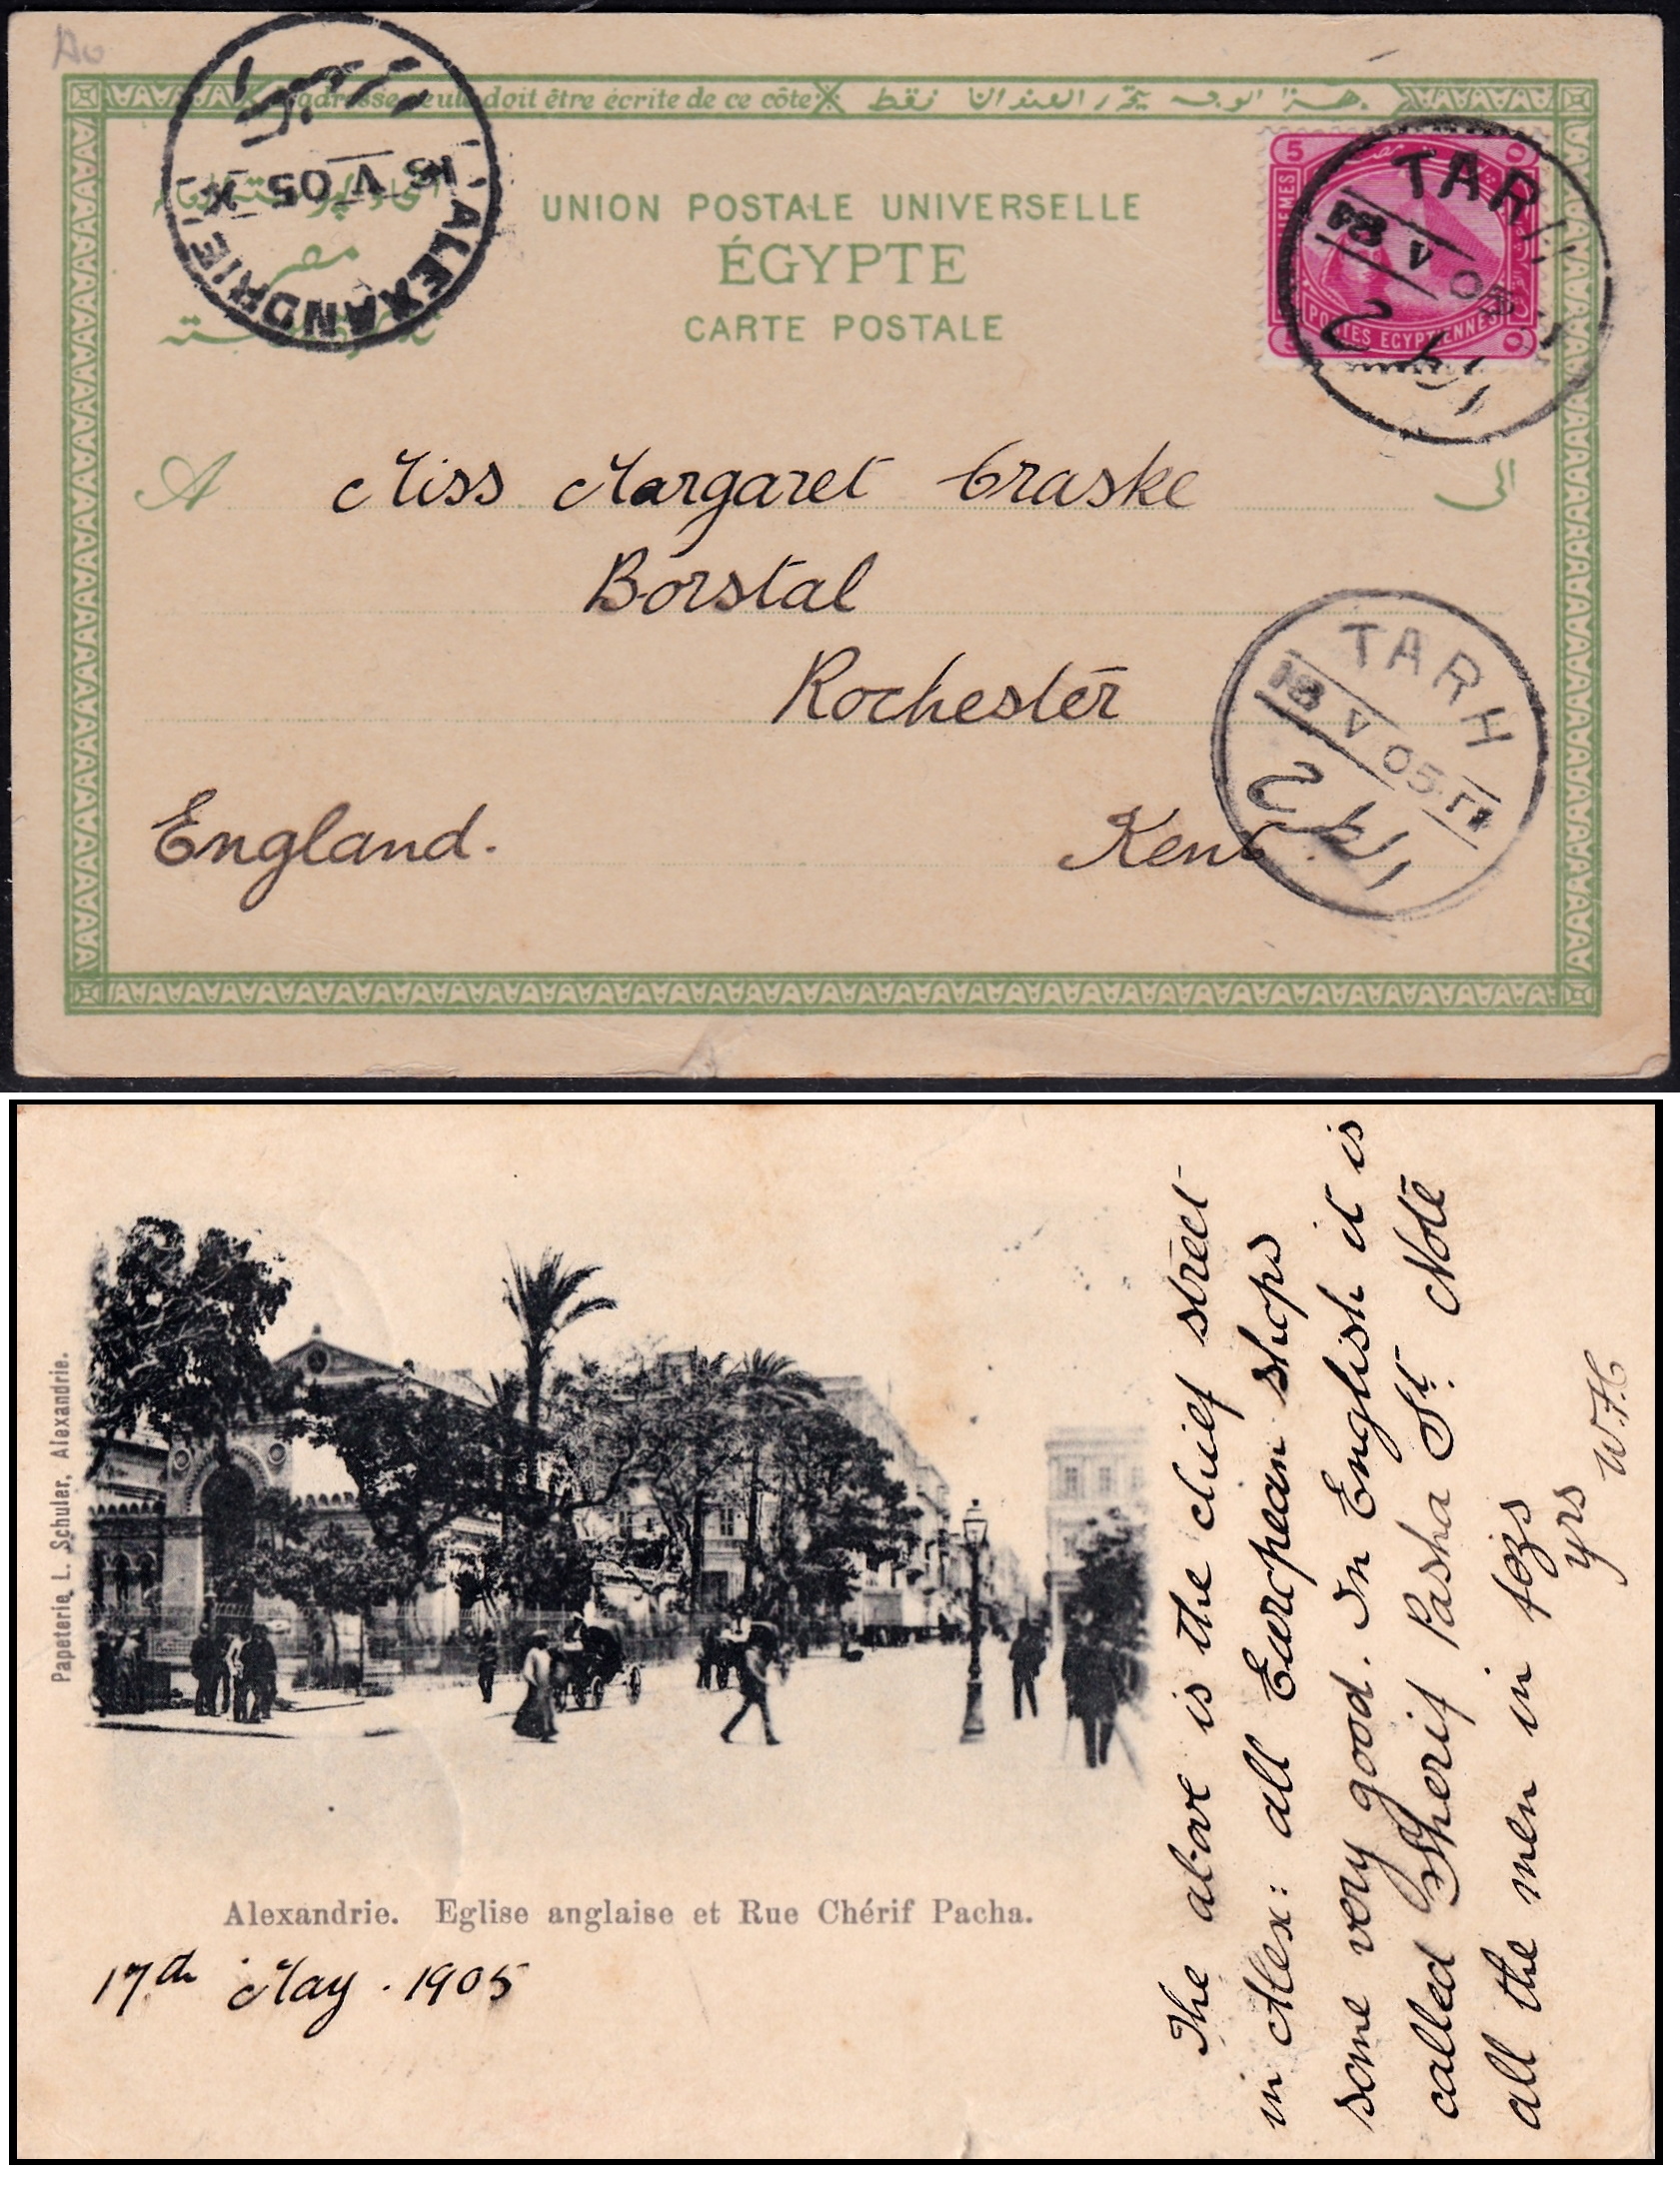 L'adresse seule doit être écrite de ce côté
هذا الوجه يحرّر العنوان فقط
UNION POSTALE UNIVERSELLE
ÉGYPTE
CARTE POSTALE
مصر
ALEXANDRIE
18 V 05 X
5
5
POSTES EGYPTIENNES
TARH
18 V 05
A Miss Margaret Craske الى
Borstal
Rochester
England. Kent
TARH
18 V 05
Papeterie L. Schuler, Alexandrie.
Alexandrie. Eglise anglaise et Rue Chérif Pacha.
17th May . 1905
The above is the chief street
in Alex: all European shops
some very good. In English it is
called Sherif Pasha St. Note
all the men in fezs
Yrs
W.H.C